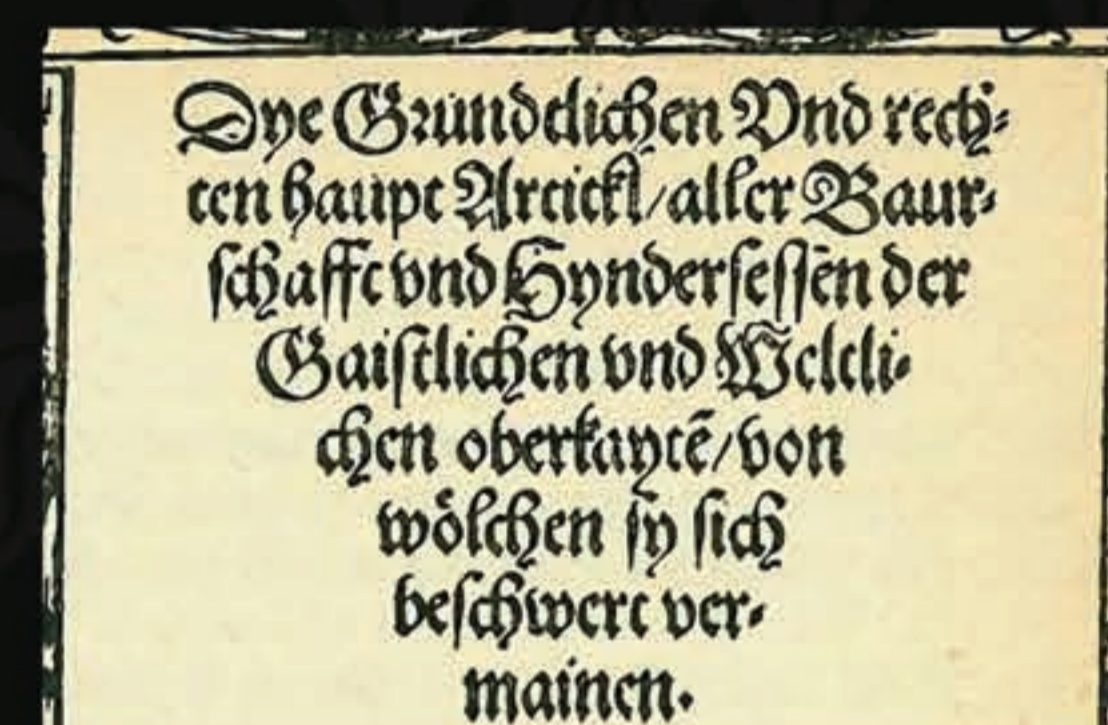 Dye Grundtlichen Vnd rech⸗
ten haupt Artickl/ aller Baur⸗
ſchafft vnd Hynderſeſſen der
Gaiſtlichen vnd Weltli⸗
chen oberkaytẽ/ von
woͤlchen ſy ſich
beſchwert ver⸗
mainen.